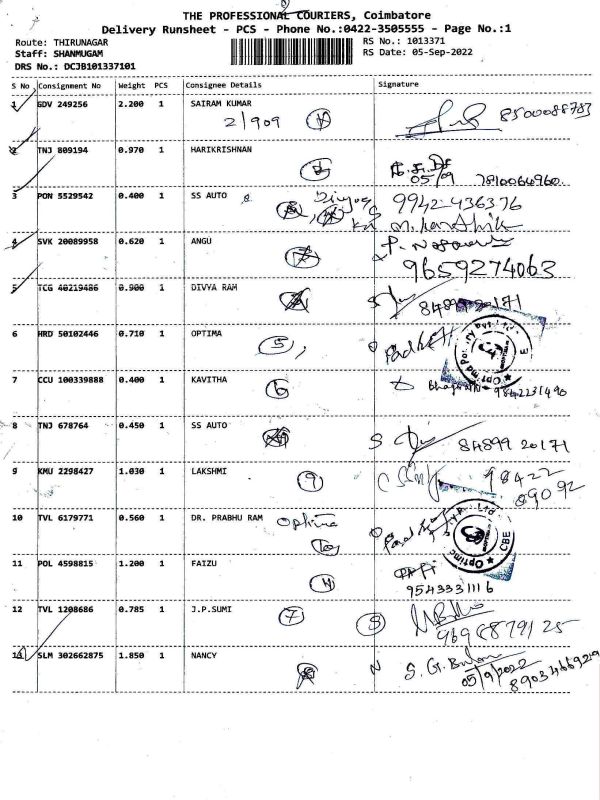 THE PROFESSIONAL COURIERS, Coimbatore
Delivery Runsheet - PCS - Phone No.:0422-3505555 - Page No.:1
Route: THIRUNAGAR
RS No.: 1013371
Staff: SHANMUGAM
RS Date: 05-Sep-2022
DRS No.: DCJB101337101
S No Consignment No Weight PCS Consignee Details Signature
1 GDV 249256 2.200 1 SAIRAM KUMAR
2/909 8500088783
2 TNJ 809194 0.970 1 HARIKRISHNAN
2 05/09 7810064960
3 PON 5529542 0.400 1 SS AUTO
9942436376
4 SVK 20089958 0.620 1 ANGU
9659274063
5 TCG 40219486 0.900 1 DIVYA RAM
84899 20171
6 HRD 50102446 0.710 1 OPTIMA
5
7 CCU 100339888 0.400 1 KAVITHA
6 9842231490
8 TNJ 678764 0.450 1 SS AUTO
S 84899 20171
9 KMU 2298427 1.030 1 LAKSHMI
9 98422
09092
10 TVL 6179771 0.560 1 DR. PRABHU RAM Optima
10 CBE
11 POL 4598815 1.200 1 FAIZU
9543331116
12 TVL 1208686 0.785 1 J.P.SUMI 7 8
9698879125
13 SLM 302662875 1.850 1 NANCY
N S. G. 05/9/2022